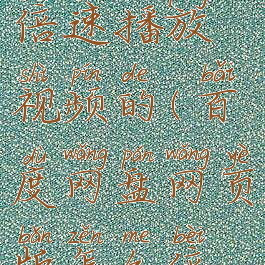 倍速播放
shì pín de bǎi
视频的(百
dù wǎng pán wǎng yè
度网盘网页
bǎn zěn me bèi